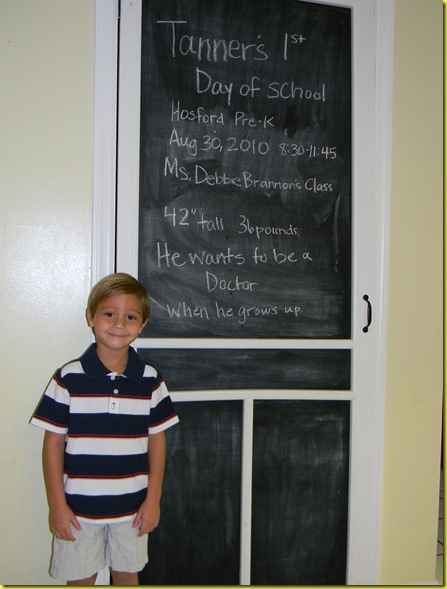 Tanner's 1st
Day of school
Hosford Pre-K
Aug 30, 2010 8:30-11:45
Ms. Debbie Brannon's Class
42" tall 36 pounds
He wants to be a
Doctor
when he grows up.